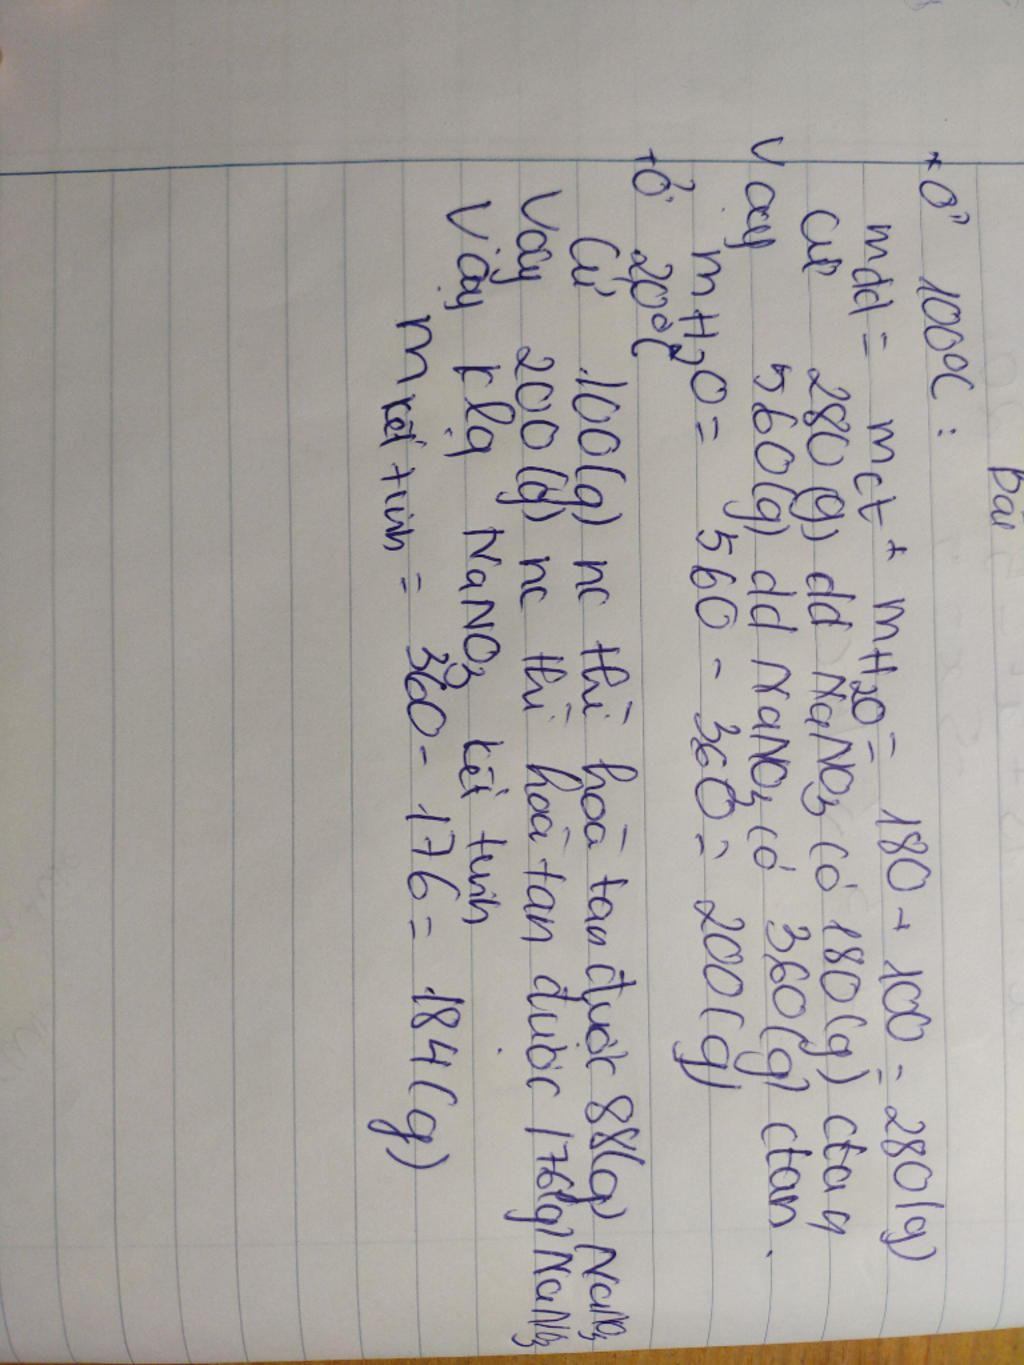 Bài
+ Ở 100°C :
mdd = mct + mH₂O = 180 + 100 = 280 (g)
Cứ 280 (g) dd NaNO₃ có 180 (g) ctan
Vậy 560 (g) dd NaNO₃ có 360 (g) ctan.
mH₂O = 560 - 360 = 200 (g)
+ Ở 20°C
Cứ 100 (g) nc thì hoà tan được 88 (g) NaNO₃
Vậy 200 (g) nc thì hoà tan được 176 (g) NaNO₃
Vậy klg NaNO₃ kết tinh
m kết tinh = 360 - 176 = 184 (g)